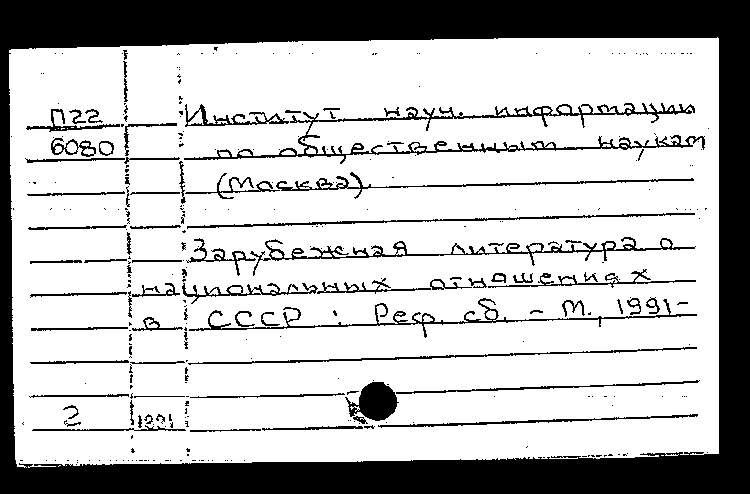 П22 Институт науч. информации
6080 по общественным наукам
(Москва).
Зарубежная литература о
национальных отношениях
в СССР : Реф. сб. - М., 1991-
2 1991